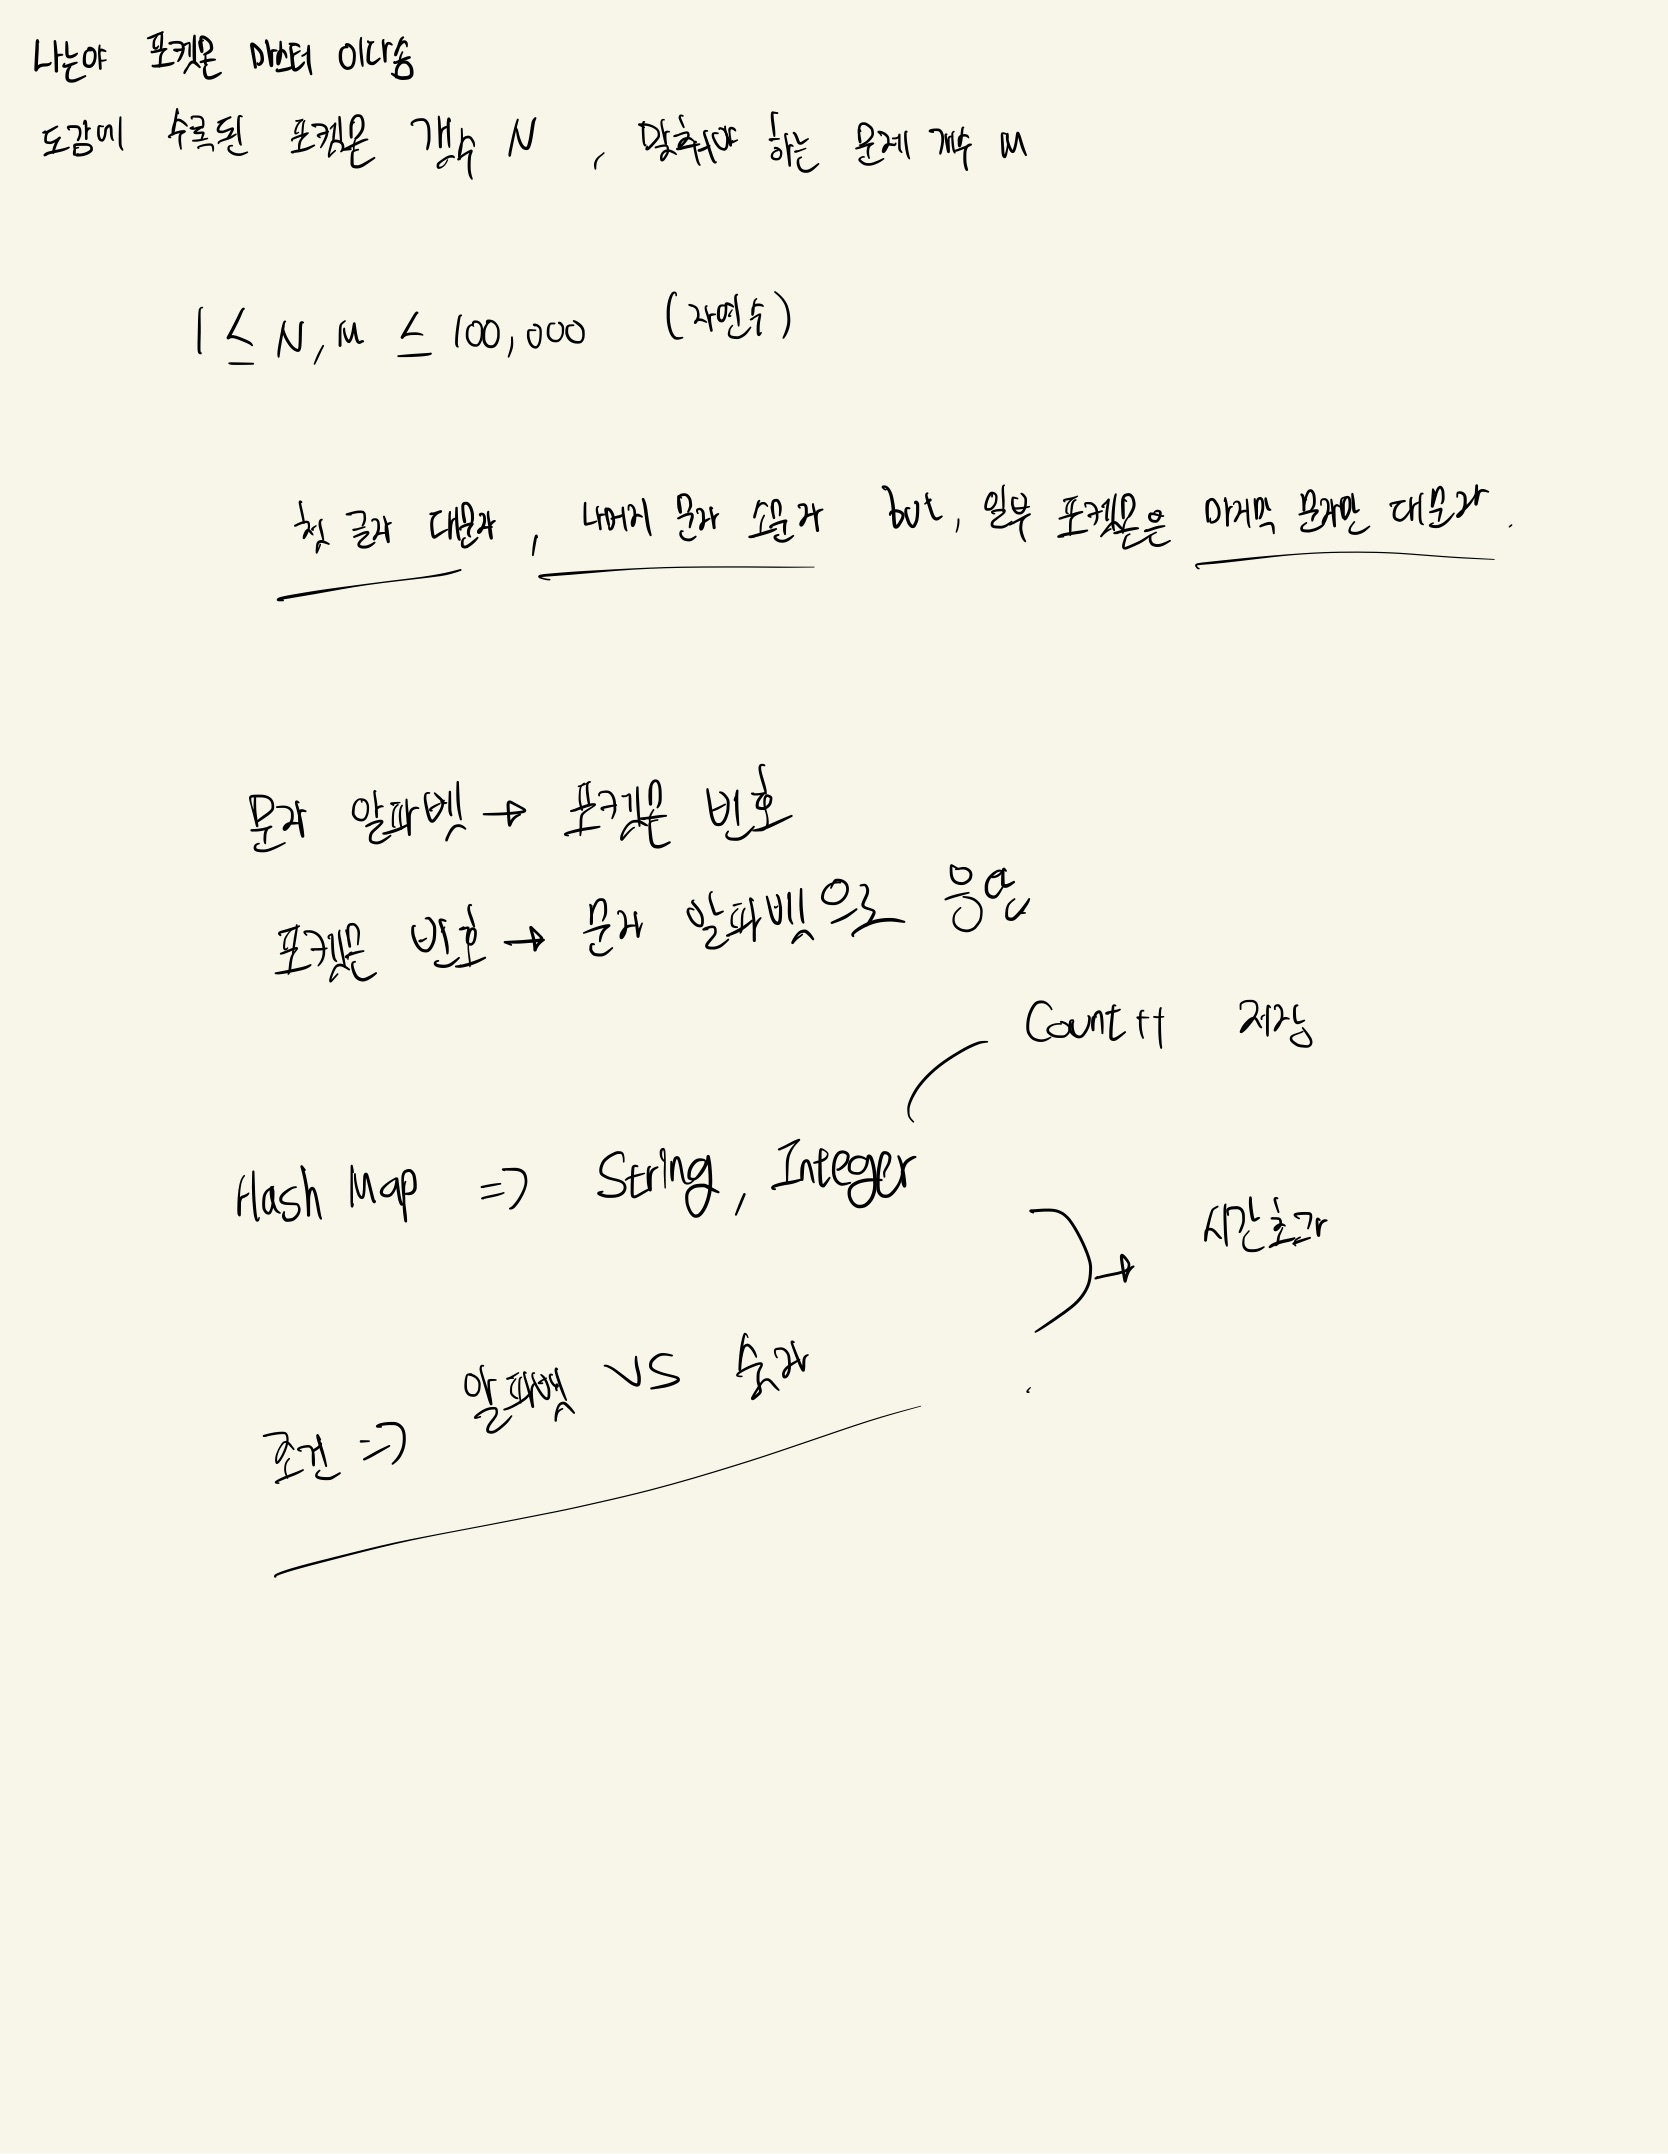 나는야 포켓몬 마스터 이다솜
도감에 수록된 포켓몬 갯수 N , 맞춰야 하는 문제 개수 M
1 ≤ N, M ≤ 100,000 (자연수)
첫 글자 대문자, 나머지 문자 소문자 but, 일부 포켓몬은 마지막 문자만 대문자.
문자 알파벳 → 포켓몬 번호
포켓몬 번호 → 문자 알파벳으로 응답
Count++ 저장
Hash Map => String, Integer
→ 시간초과
조건 => 알파벳 VS 숫자